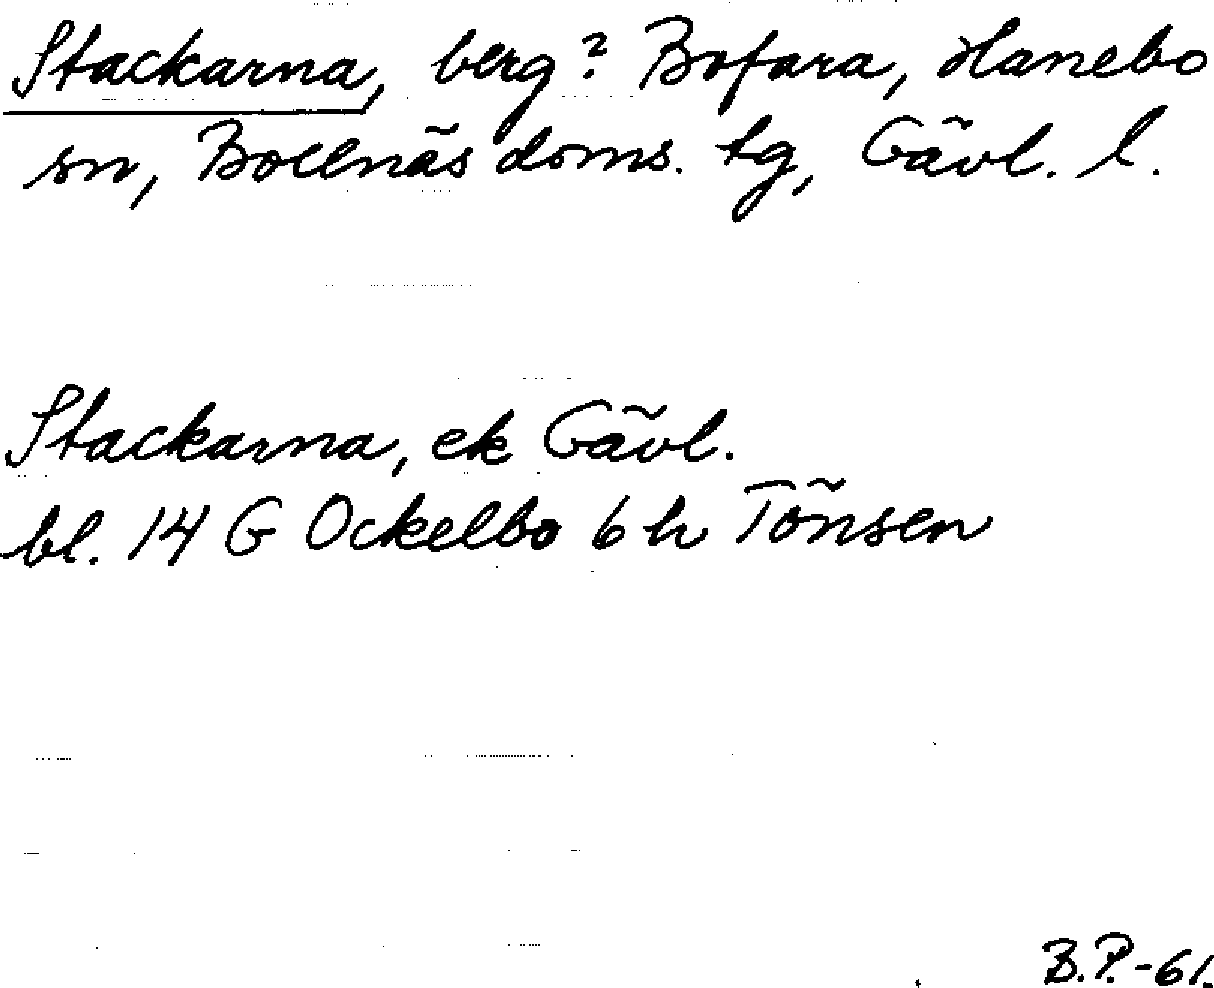 Stackarna, berg? Bofara, Hanebo
sn, Bollnäs doms. tg, Gävl. l.
Stackarna, ek Gävl.
bl. 14 G Ockelbo 6 h Tönsen
B.P.-61.